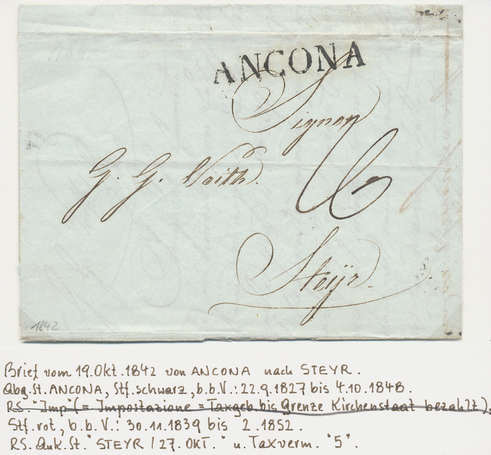 ANCONA
Signor
G. G. Voith.
6
Steÿr.
1842
Brief vom 19.Okt.1842 von ANCONA nach STEYR.
Abg.St.ANCONA, Stf.schwarz, b.b.V.:22.9.1827 bis 4.10.1848.
RS."Imp"(= Impostazione = Taxgeb.bis Grenze Kirchenstaat bezahlt),
Stf.rot, b.b.V.: 30.11.1839 bis 2.1852.
RS.Ank.St."STEYR / 27.OKT." u.Taxverm."5".